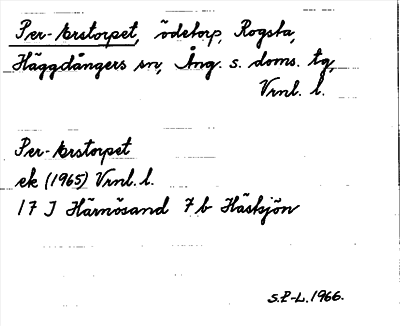 Per-Ers­torpet, ödetorp, Rogsta,
Häggdångers sn, Ång. s. doms. tg,
Vrnl. l.
Per-Erstorpet
ek (1965) Vrnl. l.
17 J Härnösand 7 b Hästsjön
S.P-L. 1966.